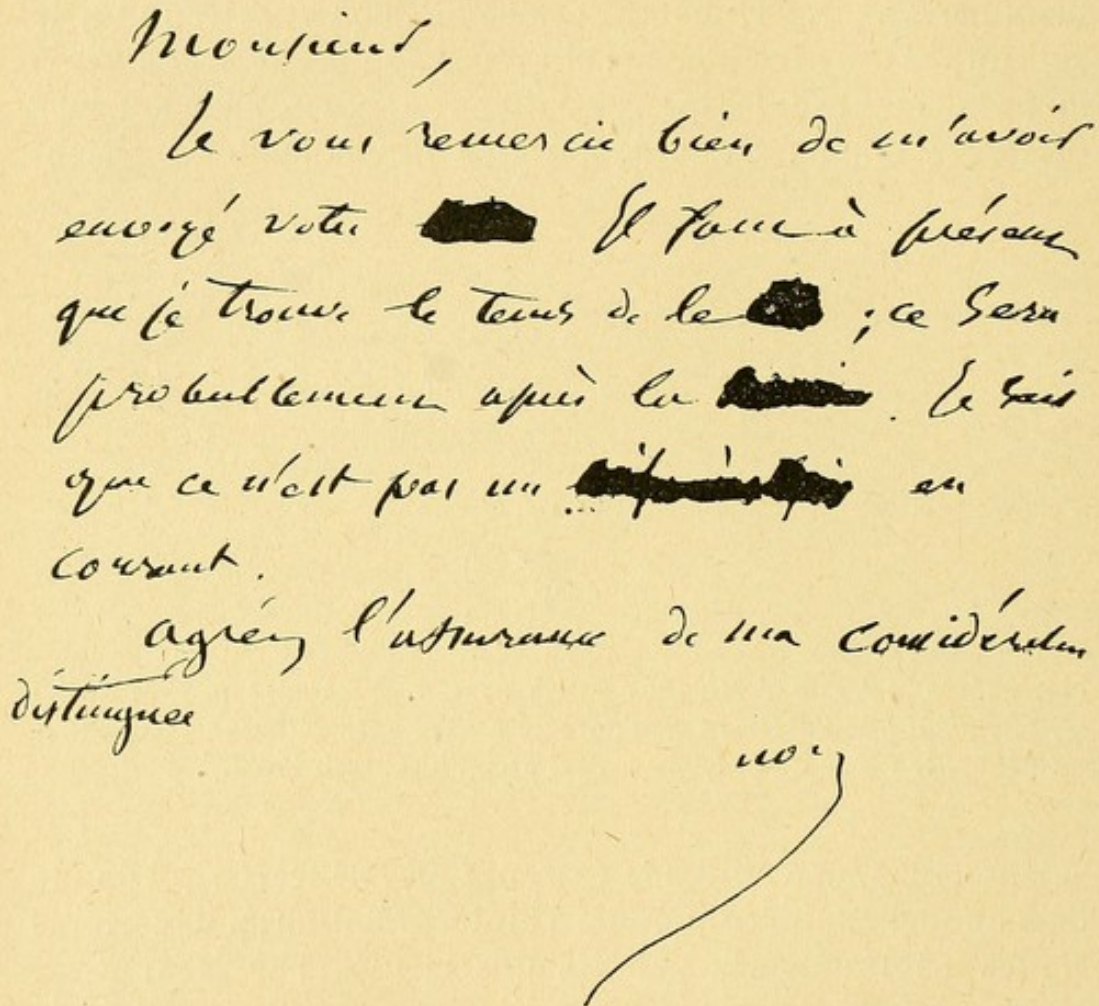 Monsieur,
Je vous remercie bien de m'avoir
envoyé votre Il faut à présent
que je trouve le tems de le ; ce sera
probablement après la . Je sais
que ce n'est pas un en
courant.
agréez l'assurance de ma considération
distinguée